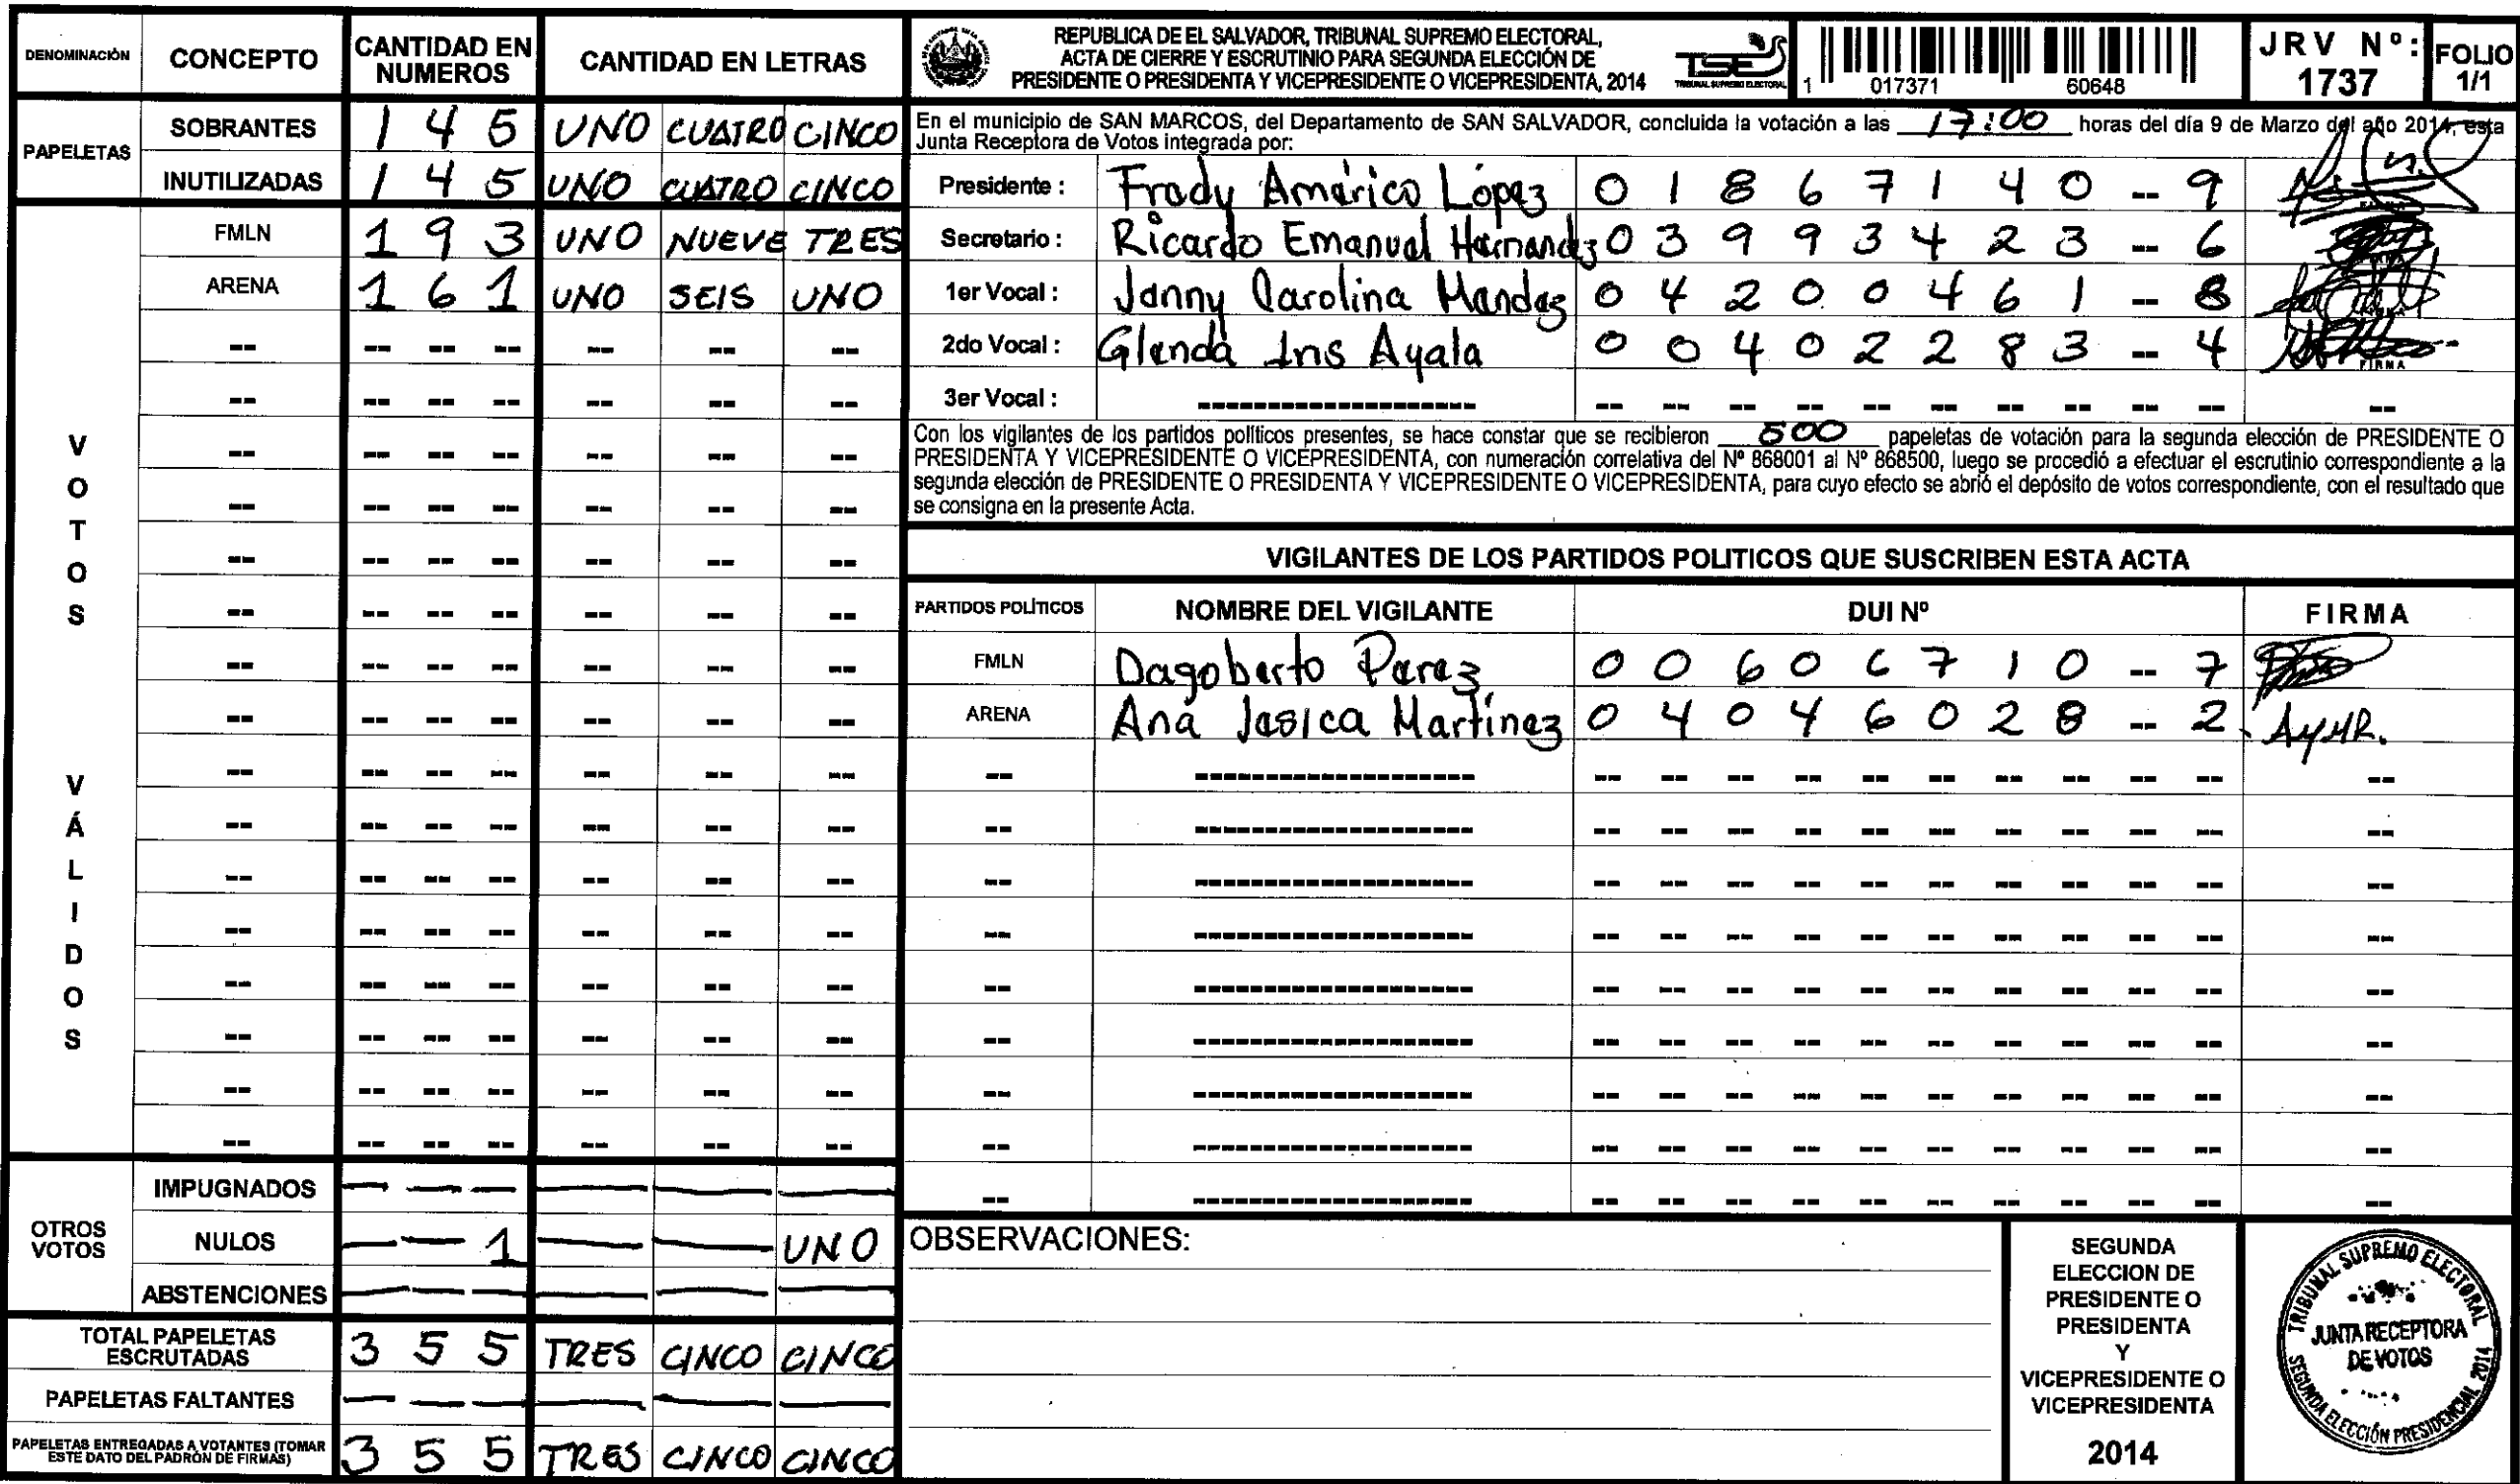 DENOMINACIÓN CONCEPTO CANTIDAD EN NUMEROS CANTIDAD EN LETRAS
PAPELETAS
SOBRANTES 1 4 5 UNO CUATRO CINCO
INUTILIZADAS 1 4 5 UNO CUATRO CINCO
VOTOS VÁLIDOS
FMLN 1 9 3 UNO NUEVE TRES
ARENA 1 6 1 UNO SEIS UNO
OTROS VOTOS
IMPUGNADOS
NULOS 1 UNO
ABSTENCIONES
TOTAL PAPELETAS ESCRUTADAS 3 5 5 TRES CINCO CINCO
PAPELETAS FALTANTES
PAPELETAS ENTREGADAS A VOTANTES (TOMAR ESTE DATO DEL PADRÓN DE FIRMAS) 3 5 5 TRES CINCO CINCO
REPUBLICA DE EL SALVADOR, TRIBUNAL SUPREMO ELECTORAL,
ACTA DE CIERRE Y ESCRUTINIO PARA SEGUNDA ELECCIÓN DE
PRESIDENTE O PRESIDENTA Y VICEPRESIDENTE O VICEPRESIDENTA, 2014
TSE
TRIBUNAL SUPREMO ELECTORAL
1 017371 60648
JRV Nº: 1737
FOLIO 1/1
En el municipio de SAN MARCOS, del Departamento de SAN SALVADOR, concluida la votación a las 17:00 horas del día 9 de Marzo del año 2014, esta
Junta Receptora de Votos integrada por:
Presidente : Fredy Américo López 0 1 8 6 7 1 4 0 -- 9
Secretario : Ricardo Emanuel Hernandez 0 3 9 9 3 4 2 3 -- 6
1er Vocal : Jenny Carolina Mendez 0 4 2 0 0 4 6 1 -- 8
2do Vocal : Glenda Iris Ayala 0 0 4 0 2 2 8 3 -- 4
FIRMA
3er Vocal :
Con los vigilantes de los partidos políticos presentes, se hace constar que se recibieron 500 papeletas de votación para la segunda elección de PRESIDENTE O
PRESIDENTA Y VICEPRESIDENTE O VICEPRESIDENTA, con numeración correlativa del Nº 868001 al Nº 868500, luego se procedió a efectuar el escrutinio correspondiente a la
segunda elección de PRESIDENTE O PRESIDENTA Y VICEPRESIDENTE O VICEPRESIDENTA, para cuyo efecto se abrió el depósito de votos correspondiente, con el resultado que
se consigna en la presente Acta.
VIGILANTES DE LOS PARTIDOS POLITICOS QUE SUSCRIBEN ESTA ACTA
PARTIDOS POLÍTICOS NOMBRE DEL VIGILANTE DUI Nº FIRMA
FMLN Dagoberto Perez 0 0 6 0 6 7 1 0 -- 7
ARENA Ana Jesica Martínez 0 4 0 4 6 0 2 8 -- 2
OBSERVACIONES:
SEGUNDA
ELECCION DE
PRESIDENTE O
PRESIDENTA
Y
VICEPRESIDENTE O
VICEPRESIDENTA
2014
TRIBUNAL SUPREMO ELECTORAL
JUNTA RECEPTORA
DE VOTOS
SEGUNDA ELECCIÓN PRESIDENCIAL 2014